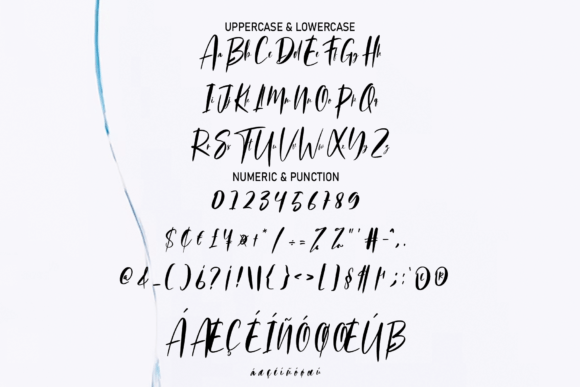 UPPERCASE & LOWERCASE
Aa Bb Cc Dd Ee Ff Gg Hh
Ii Jj Kk Ll Mm Nn Oo Pp Qq
Rr Ss Tt Uu Vv Ww Xx Yy Zz
NUMERIC & PUNCTION
0 1 2 3 4 5 6 7 8 9
$ ¢ € £ ¥ ¤ + * / ÷ = % ‰ " ' # - ^ , .
@ & _ ( ) ¿ ? ¡ ! \ | { } < > [ ] § ¶ ; : © ®
Á Æ Ç É Í Ñ Ó Ø Œ Ú ß
á æ ç é í ñ ó ø œ ú